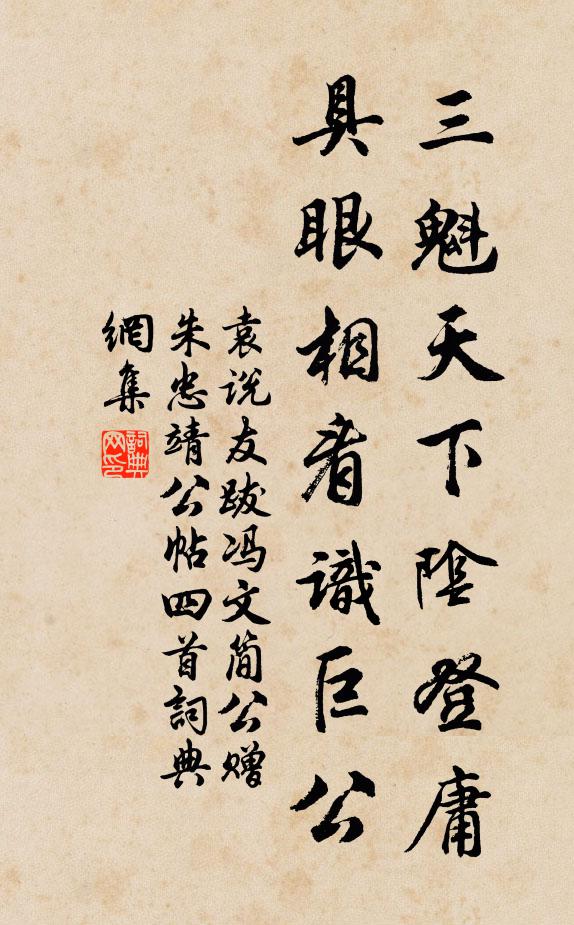 三魁天下陰登庸
具眼相看識巨公
袁说友跋冯文简公赠
朱忠靖公帖四首詞典
網集
詞典
网印